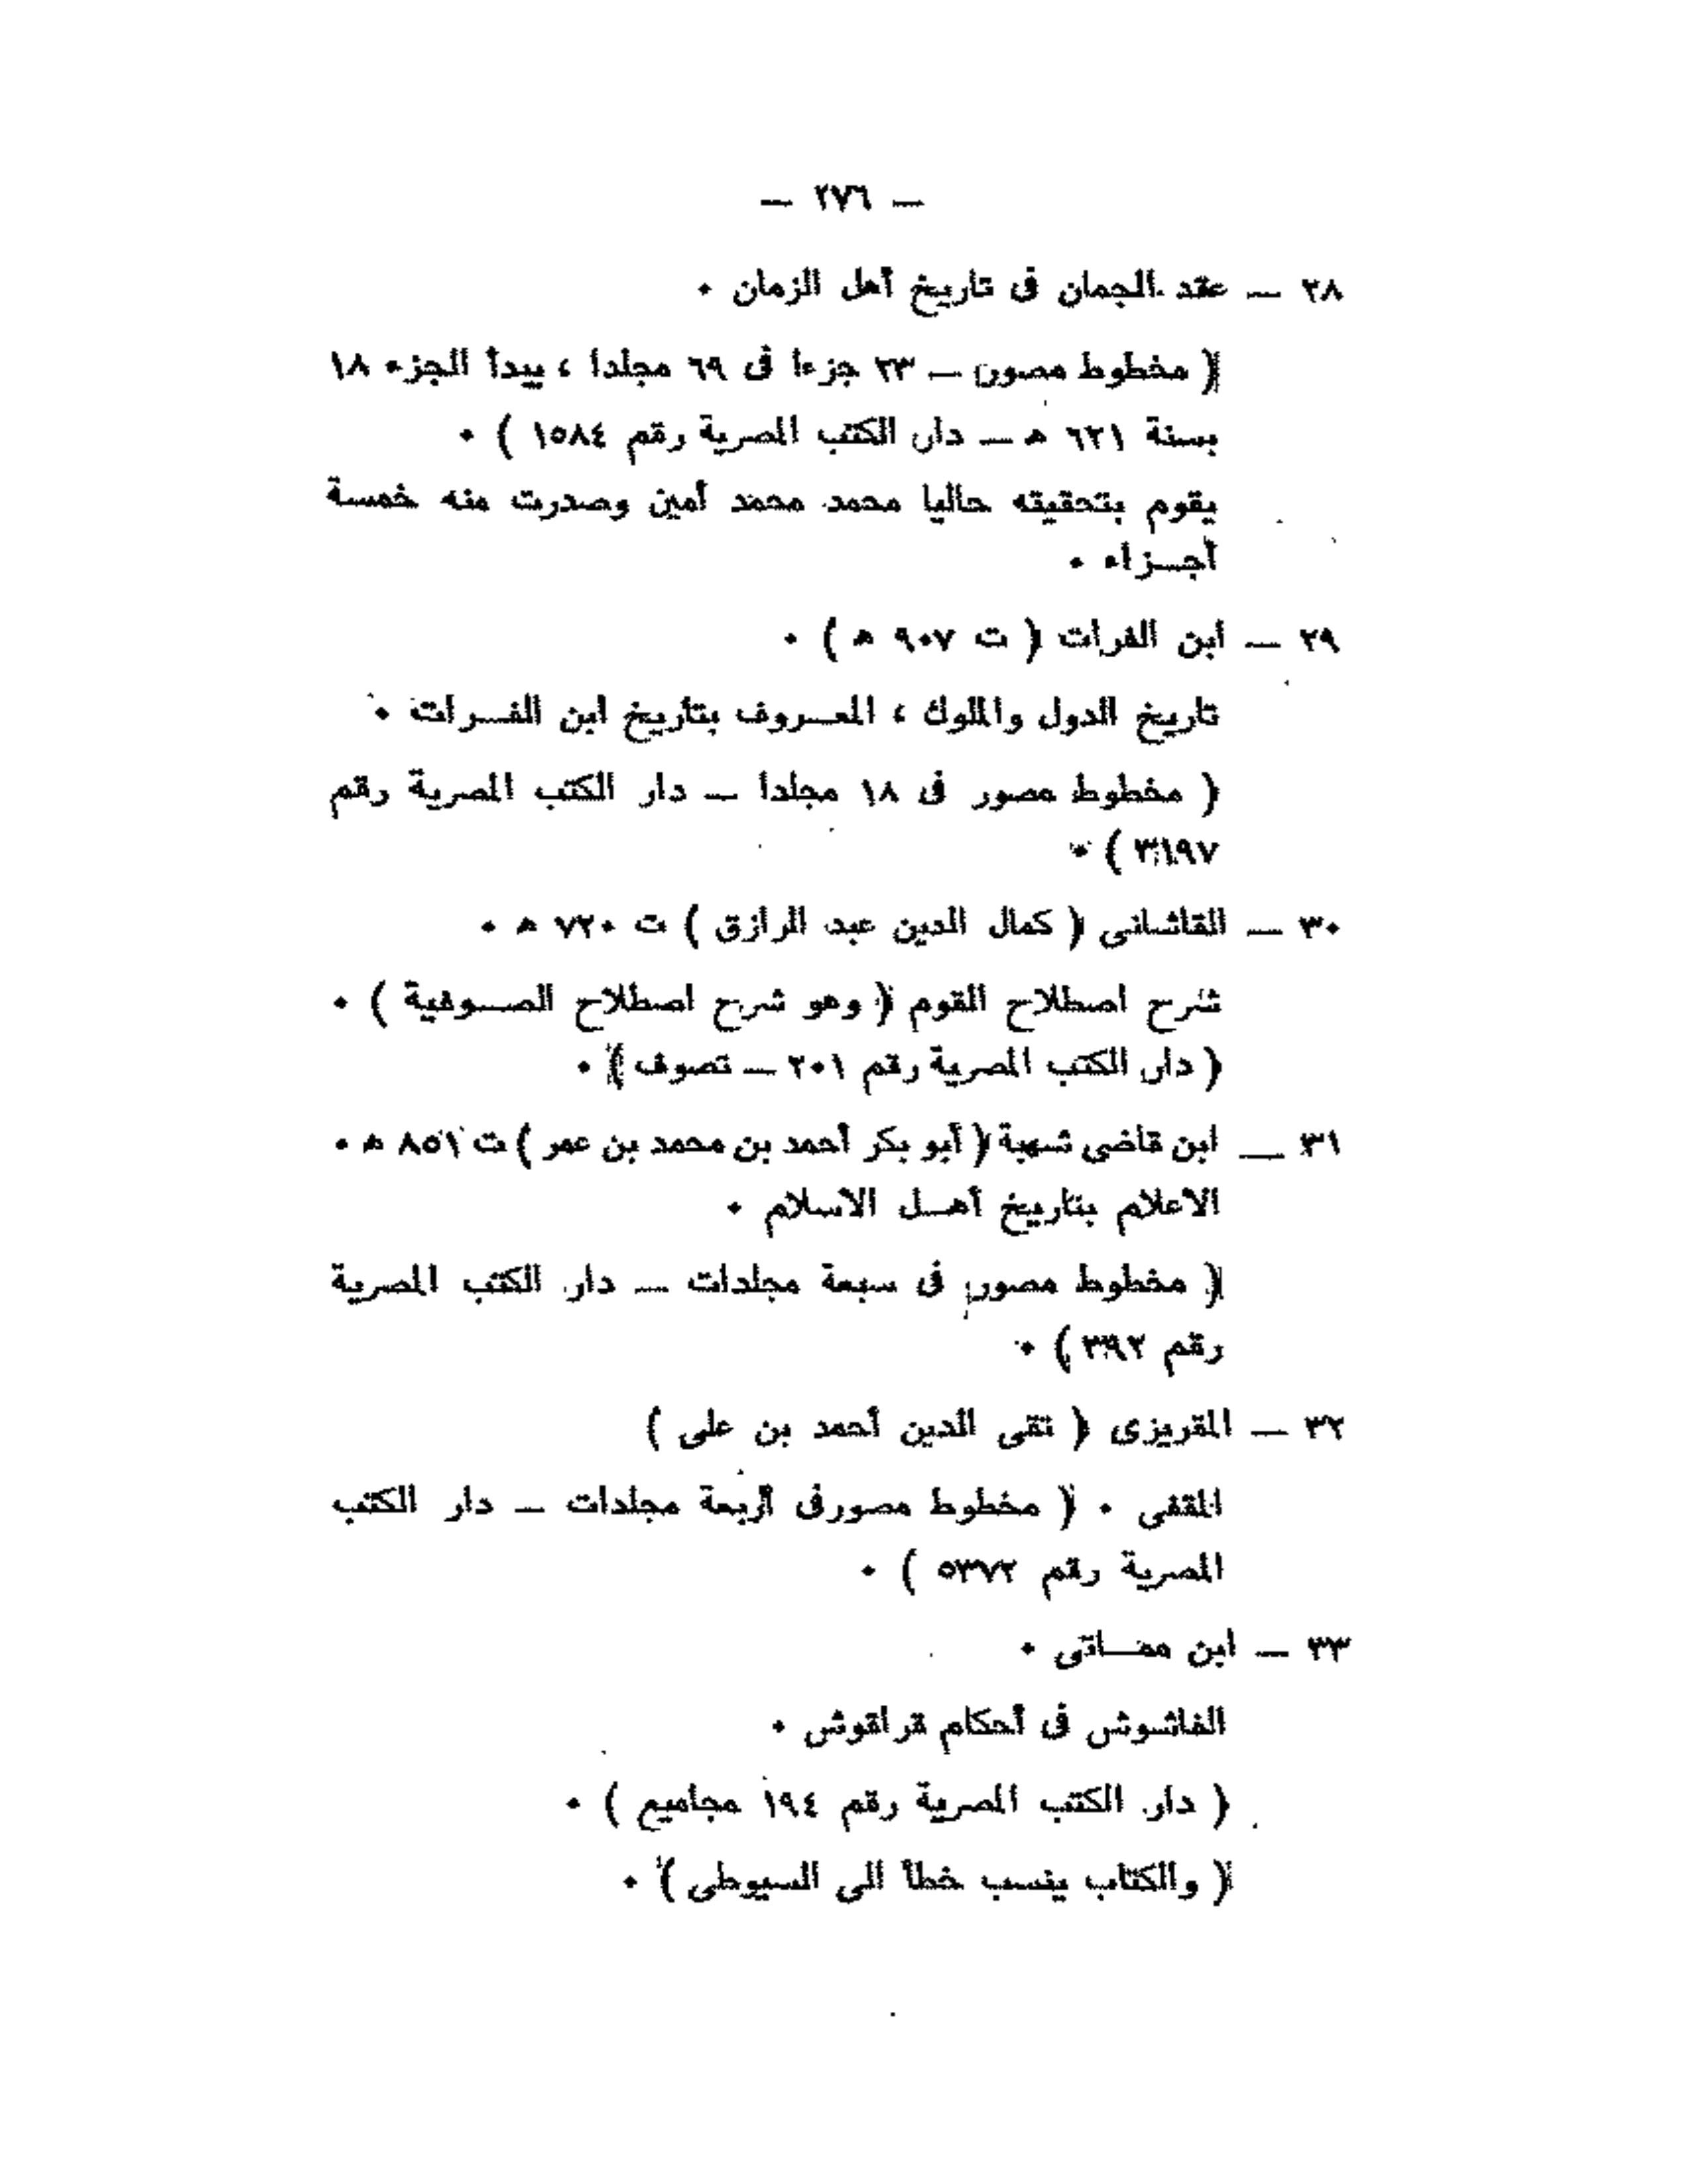 — ٢٧٦ —
٢٨ — عقد الجمان فى تاريخ أهل الزمان ٠
( مخطوط مصور — ٢٣ جزءا فى ٦٩ مجلدا ، يبدأ الجزء ١٨
بسنة ٦٢١ ه — دار الكتب المصرية رقم ١٥٨٤ ) ٠
يقوم بتحقيقه حاليا محمد محمد أمين وصدرت منه خمسة
أجـزاء ٠
٢٩ — ابن الفرات ( ت ٩٠٧ ه ) ٠
تاريخ الدول والملوك ، المعـروف بتأريخ ابن الفـرات ٠
( مخطوط مصور فى ١٨ مجلدا — دار الكتب المصرية رقم
٣١٩٧ ) ٠
٣٠ — القاشانى ( كمال الدين عبد الرازق ) ت ٧٢٠ ه ٠
شرح اصطلاح القوم ( وهو شرح اصطلاح الصـوفية ) ٠
( دار الكتب المصرية رقم ٢٠١ — تصوف ) ٠
٣١ — ابن قاضى شهبة ( أبو بكر أحمد بن محمد بن عمر ) ت ٨٥١ ه ٠
الاعلام بتاريخ أهـل الاسلام ٠
( مخطوط مصور فى سبعة مجلدات — دار الكتب المصرية
رقم ٣٩٢ ) ٠
٣٢ — المقريزى ( تقى الدين أحمد بن على )
المقفى ٠ ( مخطوط مصور فى أربعة مجلدات — دار الكتب
المصرية رقم ٥٣٧٢ ) ٠
٣٣ — ابن ممـاتى ٠
الفاشوش فى أحكام قراقوش ٠
( دار الكتب المصرية رقم ١٩٤ مجاميع ) ٠
( والكتاب ينسب خطأ الى السيوطى ) ٠